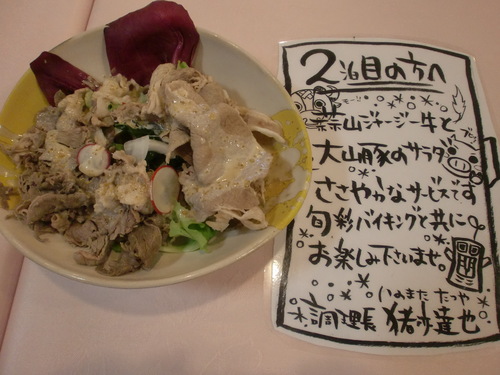 2泊目の方へ
蒜山ジャージー牛と
大山豚のサラダ
ささやかなサービスです
旬彩バイキングと共に
お楽しみ下さいませ。
いのまた たつや
調理長 猪俣達也